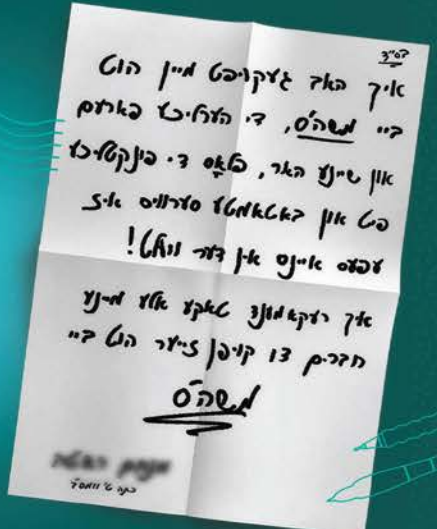 בס"ד
איך האב געקויפט מיין הוט
ביי משה'ס, די הערליכע פארעם
און שיינע האר, פלאָס די פינקטליכע
פיט און באטאמטע סערוויס איז
עפעס איינס אין דער וועלט!
איך רעקאמענד טאקע אלע מיינע
חברים צו קויפן זייער הוט ביי
משה'ס
כתה ט'